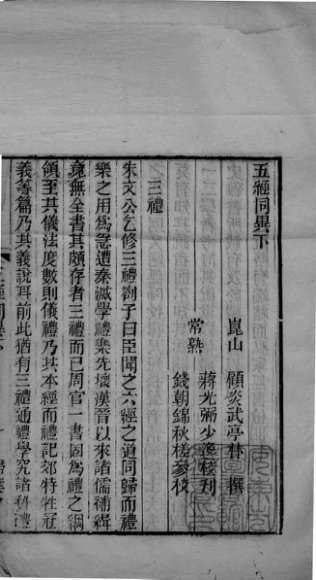 五經同異下
崑山　顧炎武亭林　撰
蔣光弼少逸校刊
常熟
錢朝錦秋槎參校
三禮
朱文公乞修三禮劄子曰臣聞之六經之道同歸而禮
樂之用為急遭秦滅學禮樂先壞漢晉以來諸儒補緝
竟無全書其頗存者三禮而已周官一書固為禮之綱
領至其儀法度數則儀禮乃其本經而禮記郊特牲冠
義等篇乃其義說耳前此猶有三禮通禮學究諸科禮